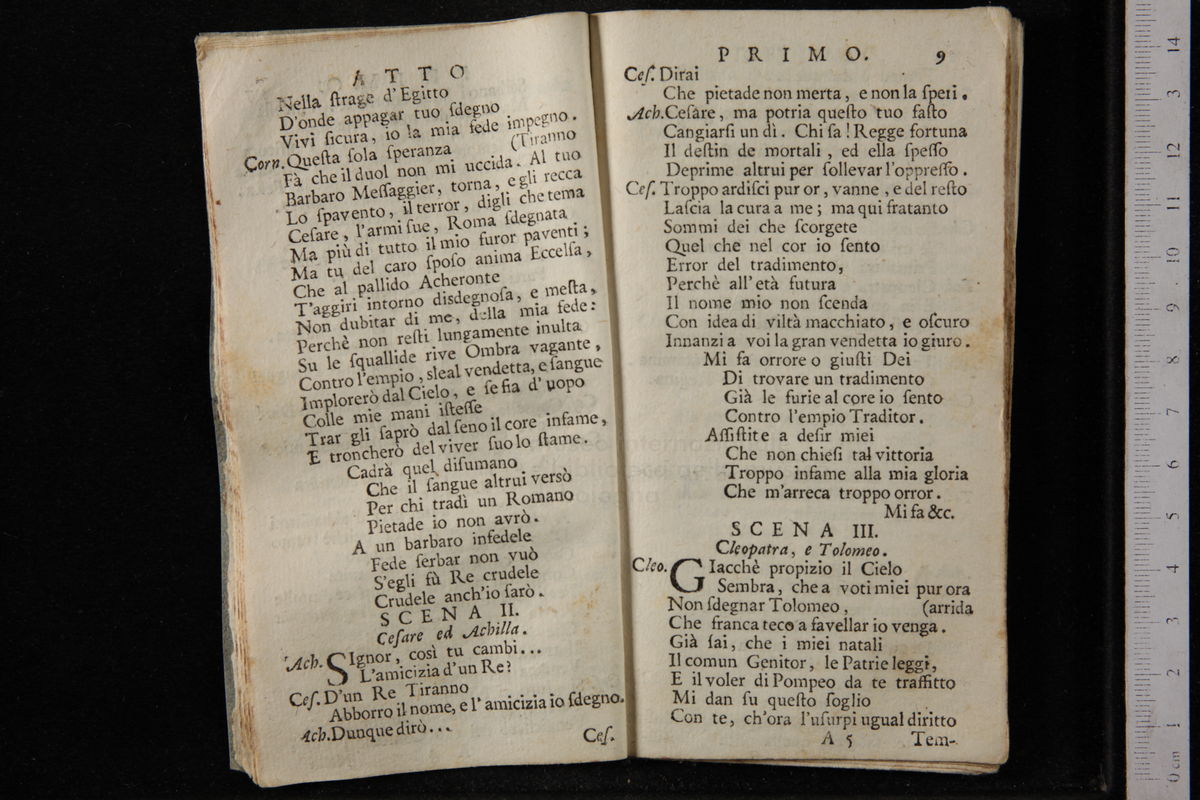 ATTO
Nella ſtrage d'Egitto
D'onde appagar tuo ſdegno
Vivi ſicura, io la mia fede impegno.
Corn. Queſta ſola ſperanza (Tiranno
Fà che il duol non mi uccida. Al tuo
Barbaro Meſſaggier, torna, e gli recca
Lo ſpavento, il terror, digli che tema
Ceſare, l'armi ſue, Roma ſdegnata
Ma più di tutto il mio furor paventi;
Ma tu del caro ſpoſo anima Eccelſa,
Che al pallido Acheronte
T'aggiri intorno disdegnoſa, e meſta,
Non dubitar di me, della mia fede:
Perchè non reſti lungamente inulta
Su le ſquallide rive Ombra vagante,
Contro l'empio, sleal vendetta, e ſangue
Implorerò dal Cielo, e ſe fia d'uopo
Colle mie mani iſteſſe
Trar gli ſaprò dal ſeno il core infame,
E troncherò del viver ſuo lo ſtame.
Cadrà quel diſumano
Che il ſangue altrui versò
Per chi tradì un Romano
Pietade io non avrò.
A un barbaro infedele
Fede ſerbar non vuò
S'egli fù Re crudele
Crudele anch'io ſarò.
SCENA II.
Ceſare ed Achilla.
Ach. SIgnor, così tu cambi...
L'amicizia d'un Re?
Ceſ. D'un Re Tiranno
Abborro il nome, e l'amicizia io ſdegno.
Ach. Dunque dirò...
Ceſ.
PRIMO. 9
Ceſ. Dirai
Che pietade non merta, e non la ſperi.
Ach. Ceſare, ma potria queſto tuo faſto
Cangiarſi un dì. Chi ſa! Regge fortuna
Il deſtin de mortali, ed ella ſpeſſo
Deprime altrui per ſollevar l'oppreſſo.
Ceſ. Troppo ardiſci pur or, vanne, e del reſto
Laſcia la cura a me; ma qui fratanto
Sommi dei che ſcorgete
Quel che nel cor io ſento
Error del tradimento,
Perchè all'età futura
Il nome mio non ſcenda
Con idea di viltà macchiato, e oſcuro
Innanzi a voi la gran vendetta io giuro.
Mi fa orrore o giuſti Dei
Di trovare un tradimento
Già le furie al core io ſento
Contro l'empio Traditor.
Aſſiſtite a deſir miei
Che non chieſi tal vittoria
Troppo infame alla mia gloria
Che m'arreca troppo orror.
Mi fa &c.
SCENA III.
Cleopatra, e Tolomeo.
Cleo. GIacchè propizio il Cielo
Sembra, che a voti miei pur ora
Non ſdegnar Tolomeo, (arrida
Che franca teco a favellar io venga.
Già ſai, che i miei natali
Il comun Genitor, le Patrie leggi,
E il voler di Pompeo da te traffitto
Mi dan ſu queſto ſoglio
Con te, ch'ora l'uſurpi ugual diritto
A 5 Tem-
14
13
12
11
10
9
8
7
6
5
4
3
2
1
0 cm